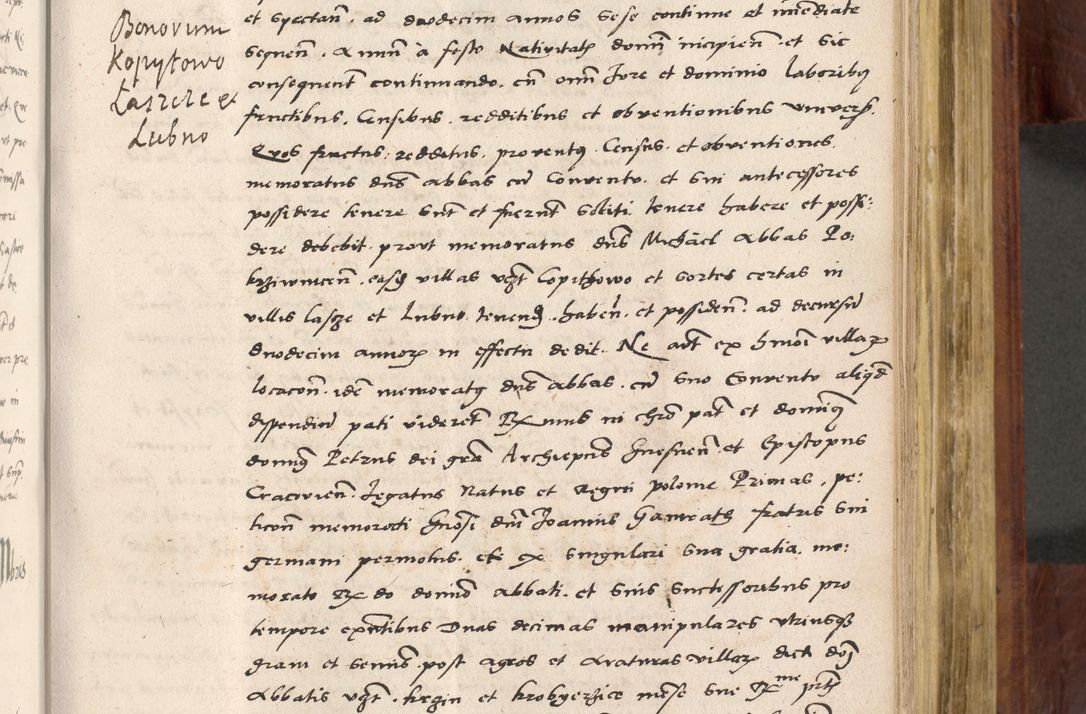 Bonorum
Kopytowo
Laszcze et
Lubno
et spectan̄. ad duodecim annos sese continue et imediate
sequen̄. Anum à festo Natiuitatis domini incipien̄. et sic
consequent̄ continuando. cū omī Jure et dominio laboribus
fructibus. Censibus. redditibus et obuentionibus vniuersis.
Quos fructus. redditus. prouentus. Census. et obuentiones.
memoratus dns̄ Abbas cū Conuentu. et sui antecessores
possidere tenere sunt et fuerunt soliti. tenere habere et possi:
dere debebit. prout memoratus dns̄ Michael Abbas Po:
krziwnicen̄. easq villas vzt̄ Copithowo et sortes certas in
villis Lasze et Lubno. tenend. haben̄. et possiden̄. ad decursū
duodecim annorum in effectu dedit. Ne aut̄ ex hmōi villarum
locacōn. idē memoratus dns̄ Abbas. cū suo Conuentu aliqd
dispendiū pati videret̄ Rx mus in chrō pat̄ et dominus
dominus Petrus dei grā Archiepus̄ Gnesnen̄. et Episcopus
Cracouien̄. Legatus Natus et Regni polonie Primas. pe:
ticōn memorati Gnōsi dni Joannis Gamrath fratris sui
germani permotus. ex singulari sua gratia. me:
morato Rx do domīo Abbati. et suis successoribus pro
tempore exn̄tibus Duas decimas manipulares vtriusqz
grani et seminis post agros et araturas villarum dicti doj
Abbatis vzt̄. krzin et krobyerzice mense sue Rx me